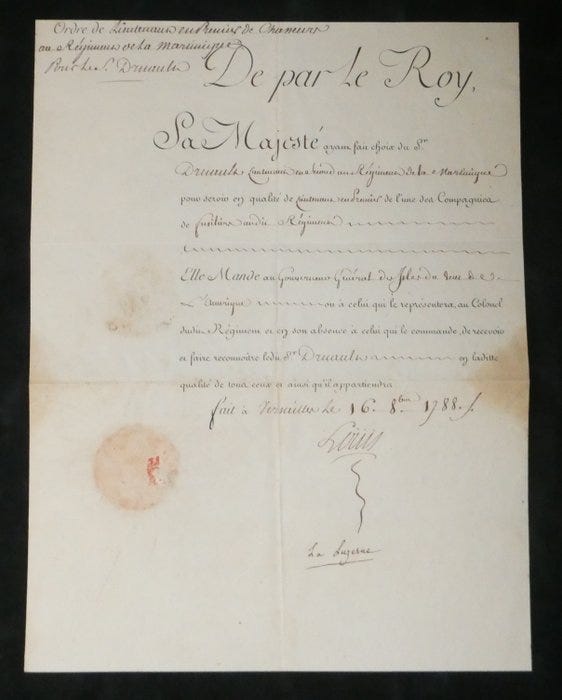 Ordre de Lieutenant en Premier de Chasseurs
au Régiment de la Martinique
Pour le Sr. Druault
De par le Roy,
Sa Majesté ayant fait choix du Sr.
Druault Lieutenant en second au Régiment de la Martinique
pour servir en qualité de Lieutenant en Premier de l'une des Compagnies
de fusiliers audit Régiment
Elle Mande au Gouverneur Général des Isles du Vent de
L'Amérique ou à celui qui le représentera, au Colonel
dudit Régiment et en son absence à celui qui le commande, de recevoir
et faire reconnoître ledit Sr. Druault en ladite
qualité de tous ceux et ainsi qu'il appartiendra
fait à Versailles le 16. 8bre 1788.
Louis
La Luzerne